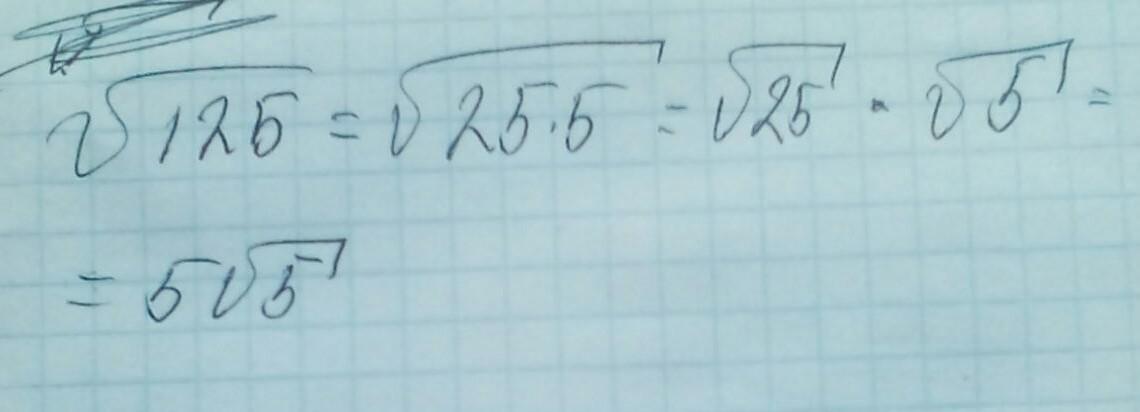 √125 = √25·5 = √25 · √5 =
= 5√5